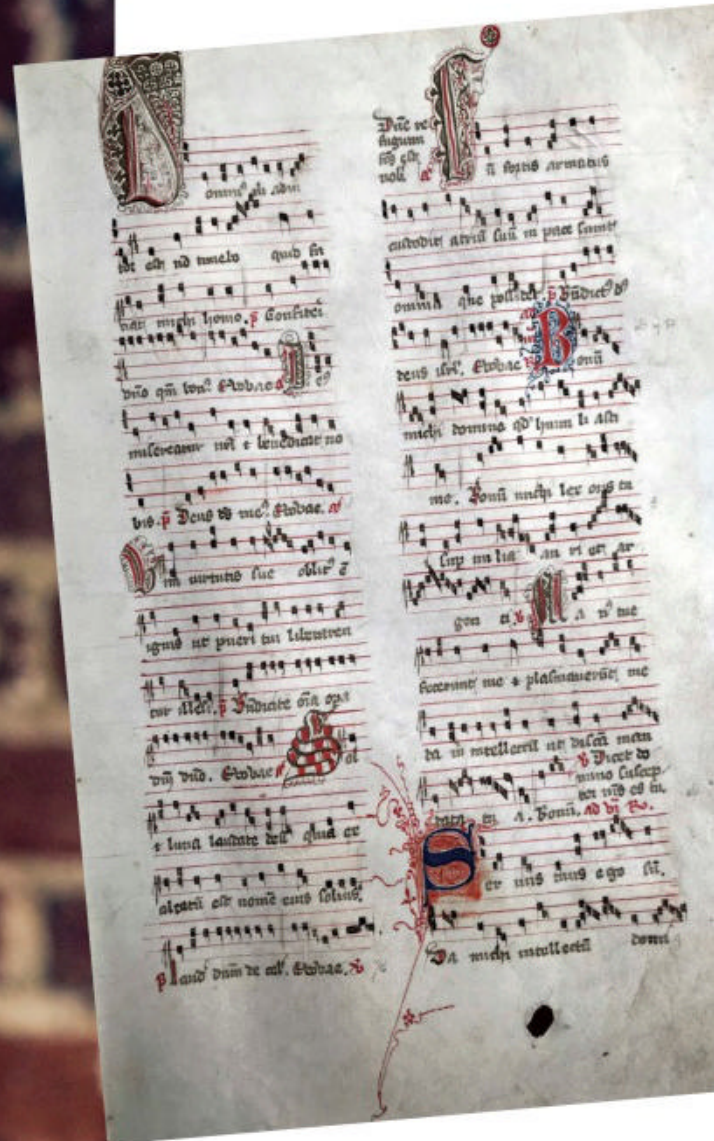 omin' 
tor est nō timebo quid fa
ciat michi homo. p̄ Confitei
dn̄o qm̄ bon'. Evovae. a
misereatur nr̄i ⁊ benedicat no
bis. p̄ Deus ds me'. Evovae. a
virtutis sue oblit' ē
ignis ut pueri tui liberaren
tur illesi. p̄ Bn̄dicite om̄ia opa
dn̄i dn̄o. Evovae a ol
⁊ luna laudate deū quia ex
altatū est nomē eius solius.
p̄ Laud' dn̄m de cel'. Evovae.
Dn̄e re
fugium
noli a
fortis armatus
custodit atriū suū in pace sunt
omnia que possidet p̄ Bn̄dict' ds
deus isrl'. Evovae Bonū
michi domine qd' humiliasti
me. Bonū michi lex oris tu
i sup milia au ri et ar
gen ti. Man' tue
fecerunt me ⁊ plasmaverūt me
da m intellectū ut discā man
Dicet do
mino suscep
tor m's es tu.
data tu a. Bonū.
Servus tuus ego sū.
Da michi intellectū domi